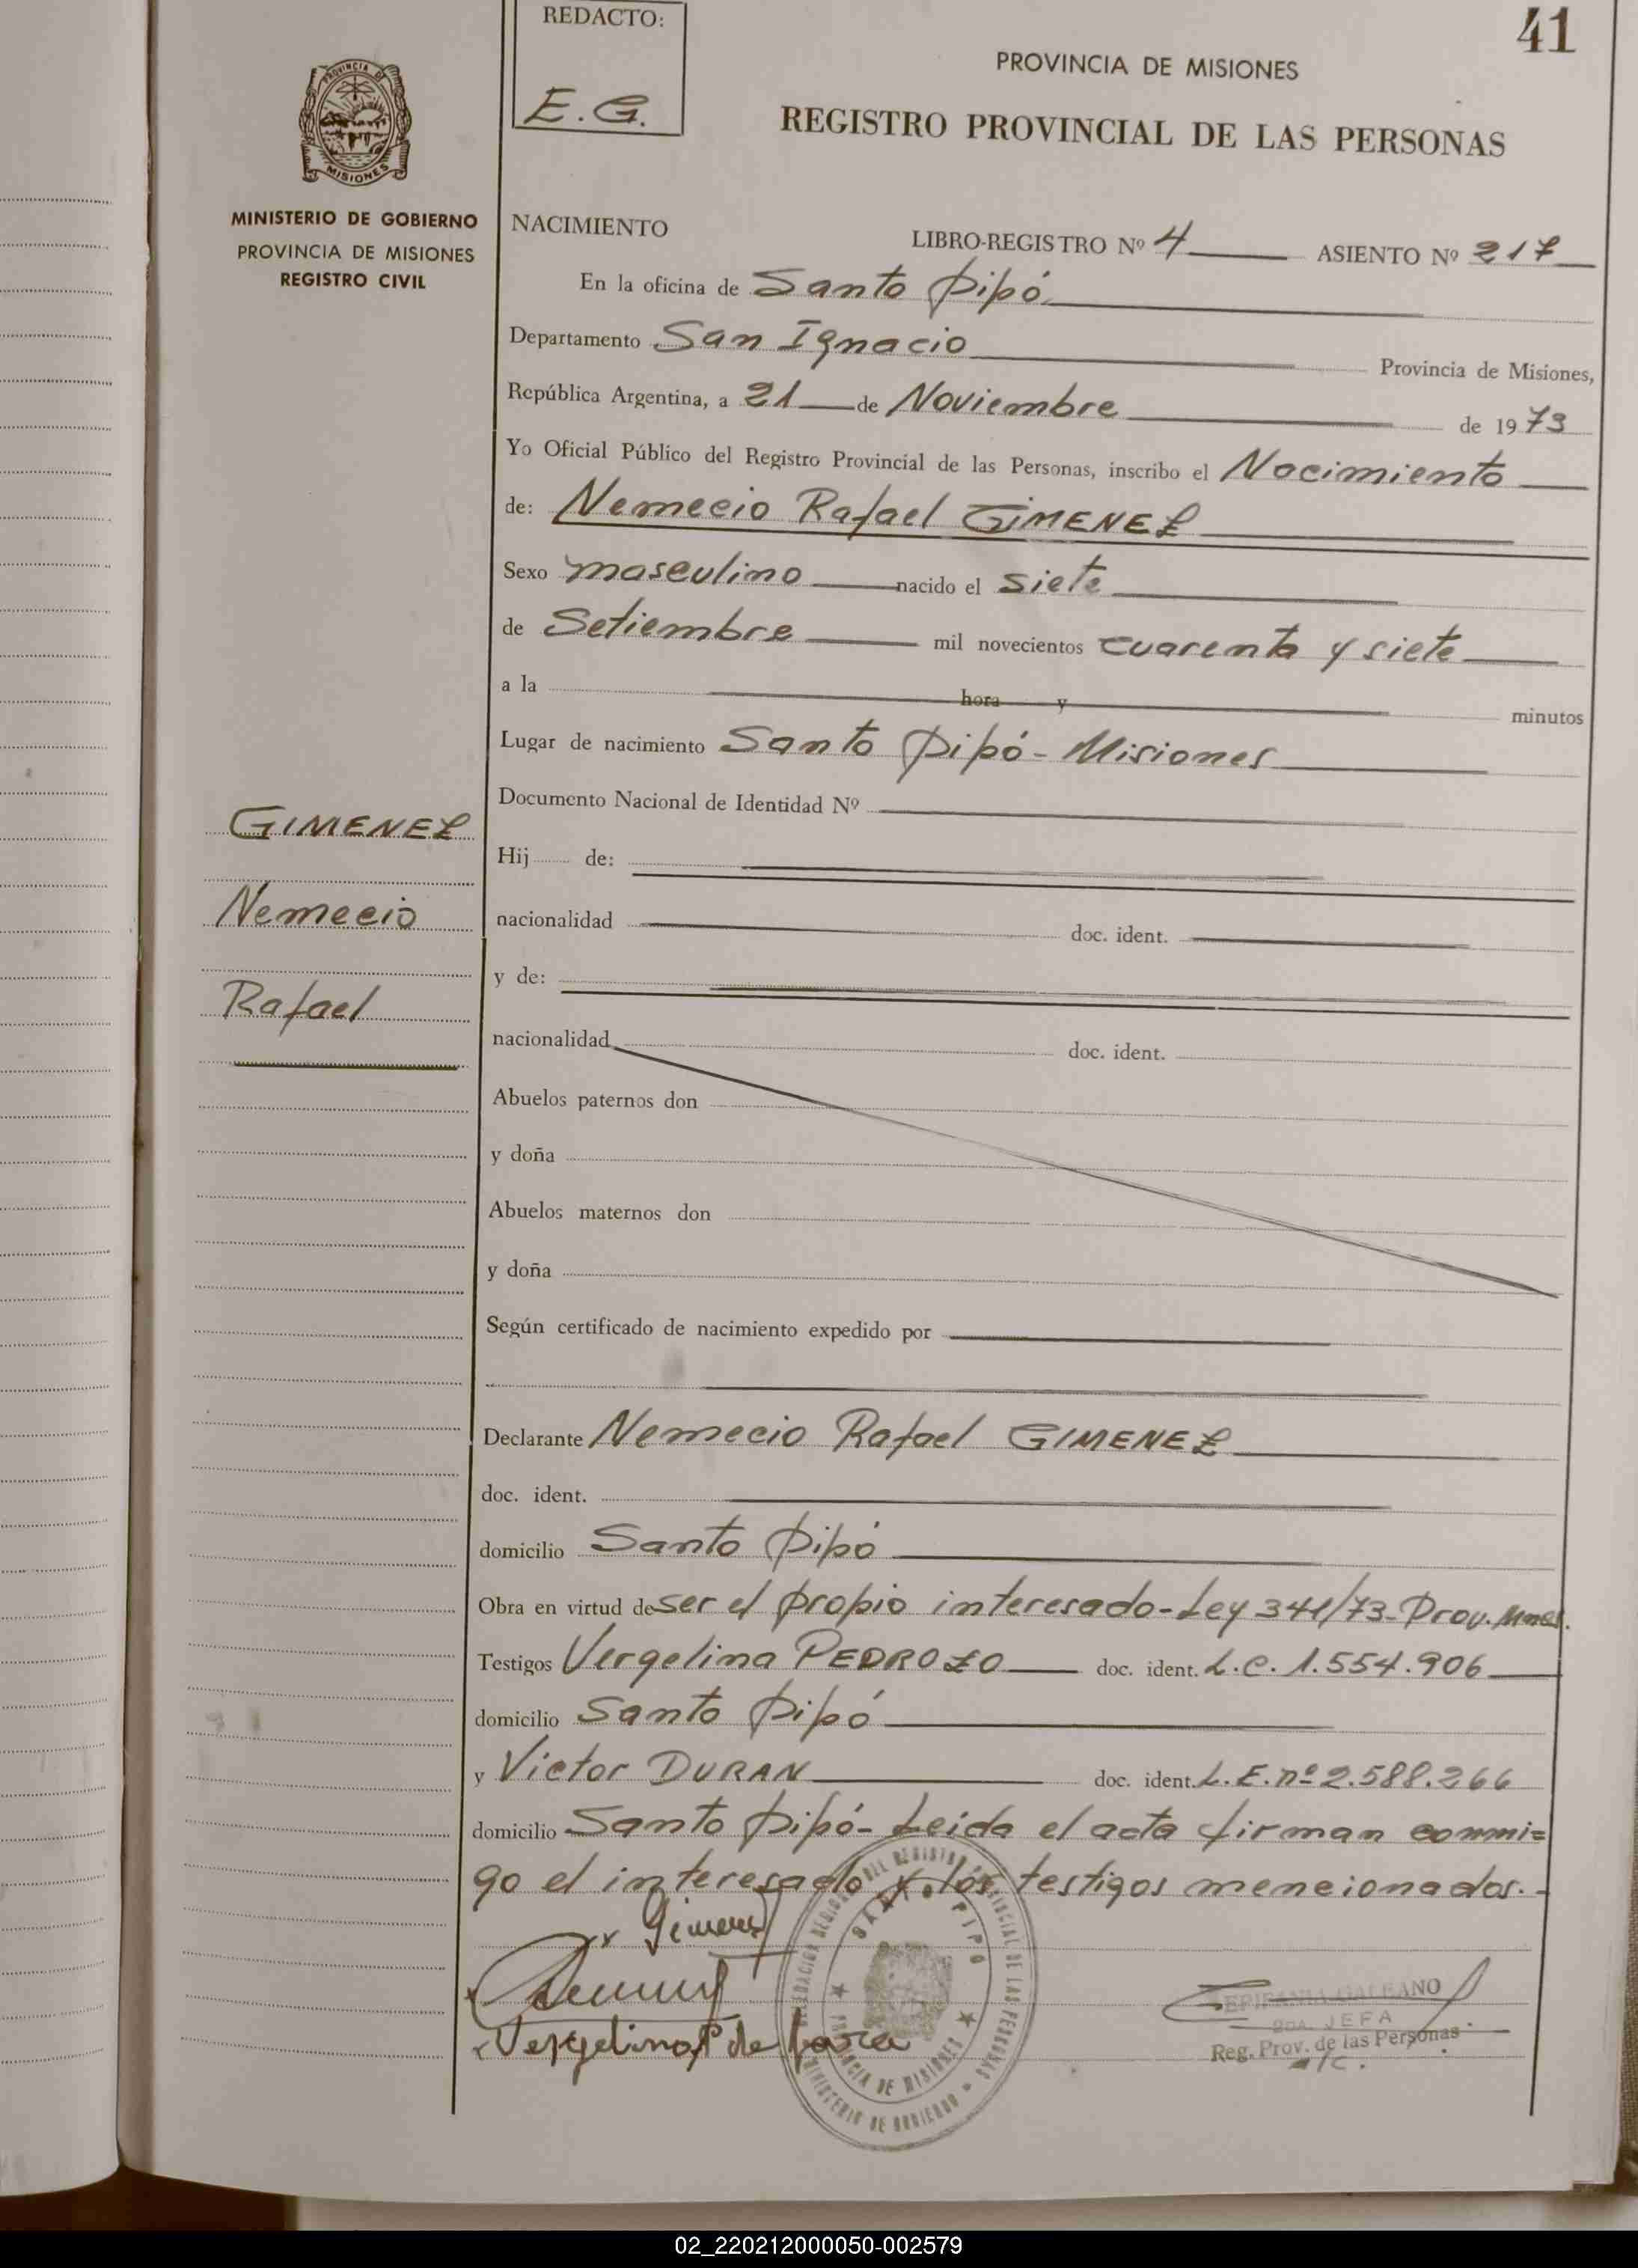 41
REDACTO:
E.G.
PROVINCIA DE MISIONES
REGISTRO PROVINCIAL DE LAS PERSONAS
PROVINCIA DE
MISIONES
MINISTERIO DE GOBIERNO
PROVINCIA DE MISIONES
REGISTRO CIVIL
NACIMIENTO LIBRO-REGISTRO Nº 4 ASIENTO Nº 217
En la oficina de Santo Pipó
Departamento San Ignacio Provincia de Misiones,
República Argentina, a 21 de Noviembre de 1973
Yo Oficial Público del Registro Provincial de las Personas, inscribo el Nacimiento
de: Nemecio Rafael GIMENEZ
Sexo masculino nacido el siete
de Setiembre mil novecientos cuarenta y siete
a la hora y minutos
Lugar de nacimiento Santo Pipó - Misiones
Documento Nacional de Identidad Nº
GIMENEZ
Hij de:
Nemecio
nacionalidad doc. ident.
y de:
Rafael
nacionalidad doc. ident.
Abuelos paternos don
y doña
Abuelos maternos don
y doña
Según certificado de nacimiento expedido por
Declarante Nemecio Rafael GIMENEZ
doc. ident.
domicilio Santo Pipó
Obra en virtud de ser el propio interesado - Ley 341/73 - Prov. Mnes.
Testigos Vergelina PEDROZO doc. ident. L.C. 1.554.906
domicilio Santo Pipó
y Victor DURAN doc. ident. L.E. nº 2.588.266
domicilio Santo Pipó - Leida el acta firman conmi=
go el interesado y los testigos mencionados.-
Gimenez
Vergelina P de
SANTO PIPO
PROVINCIA DE MISIONES
MINISTERIO DE GOBIERNO
EPIFANIA GALEANO
JEFA
Reg. Prov. de las Personas
a/c.
02_220212000050-002579